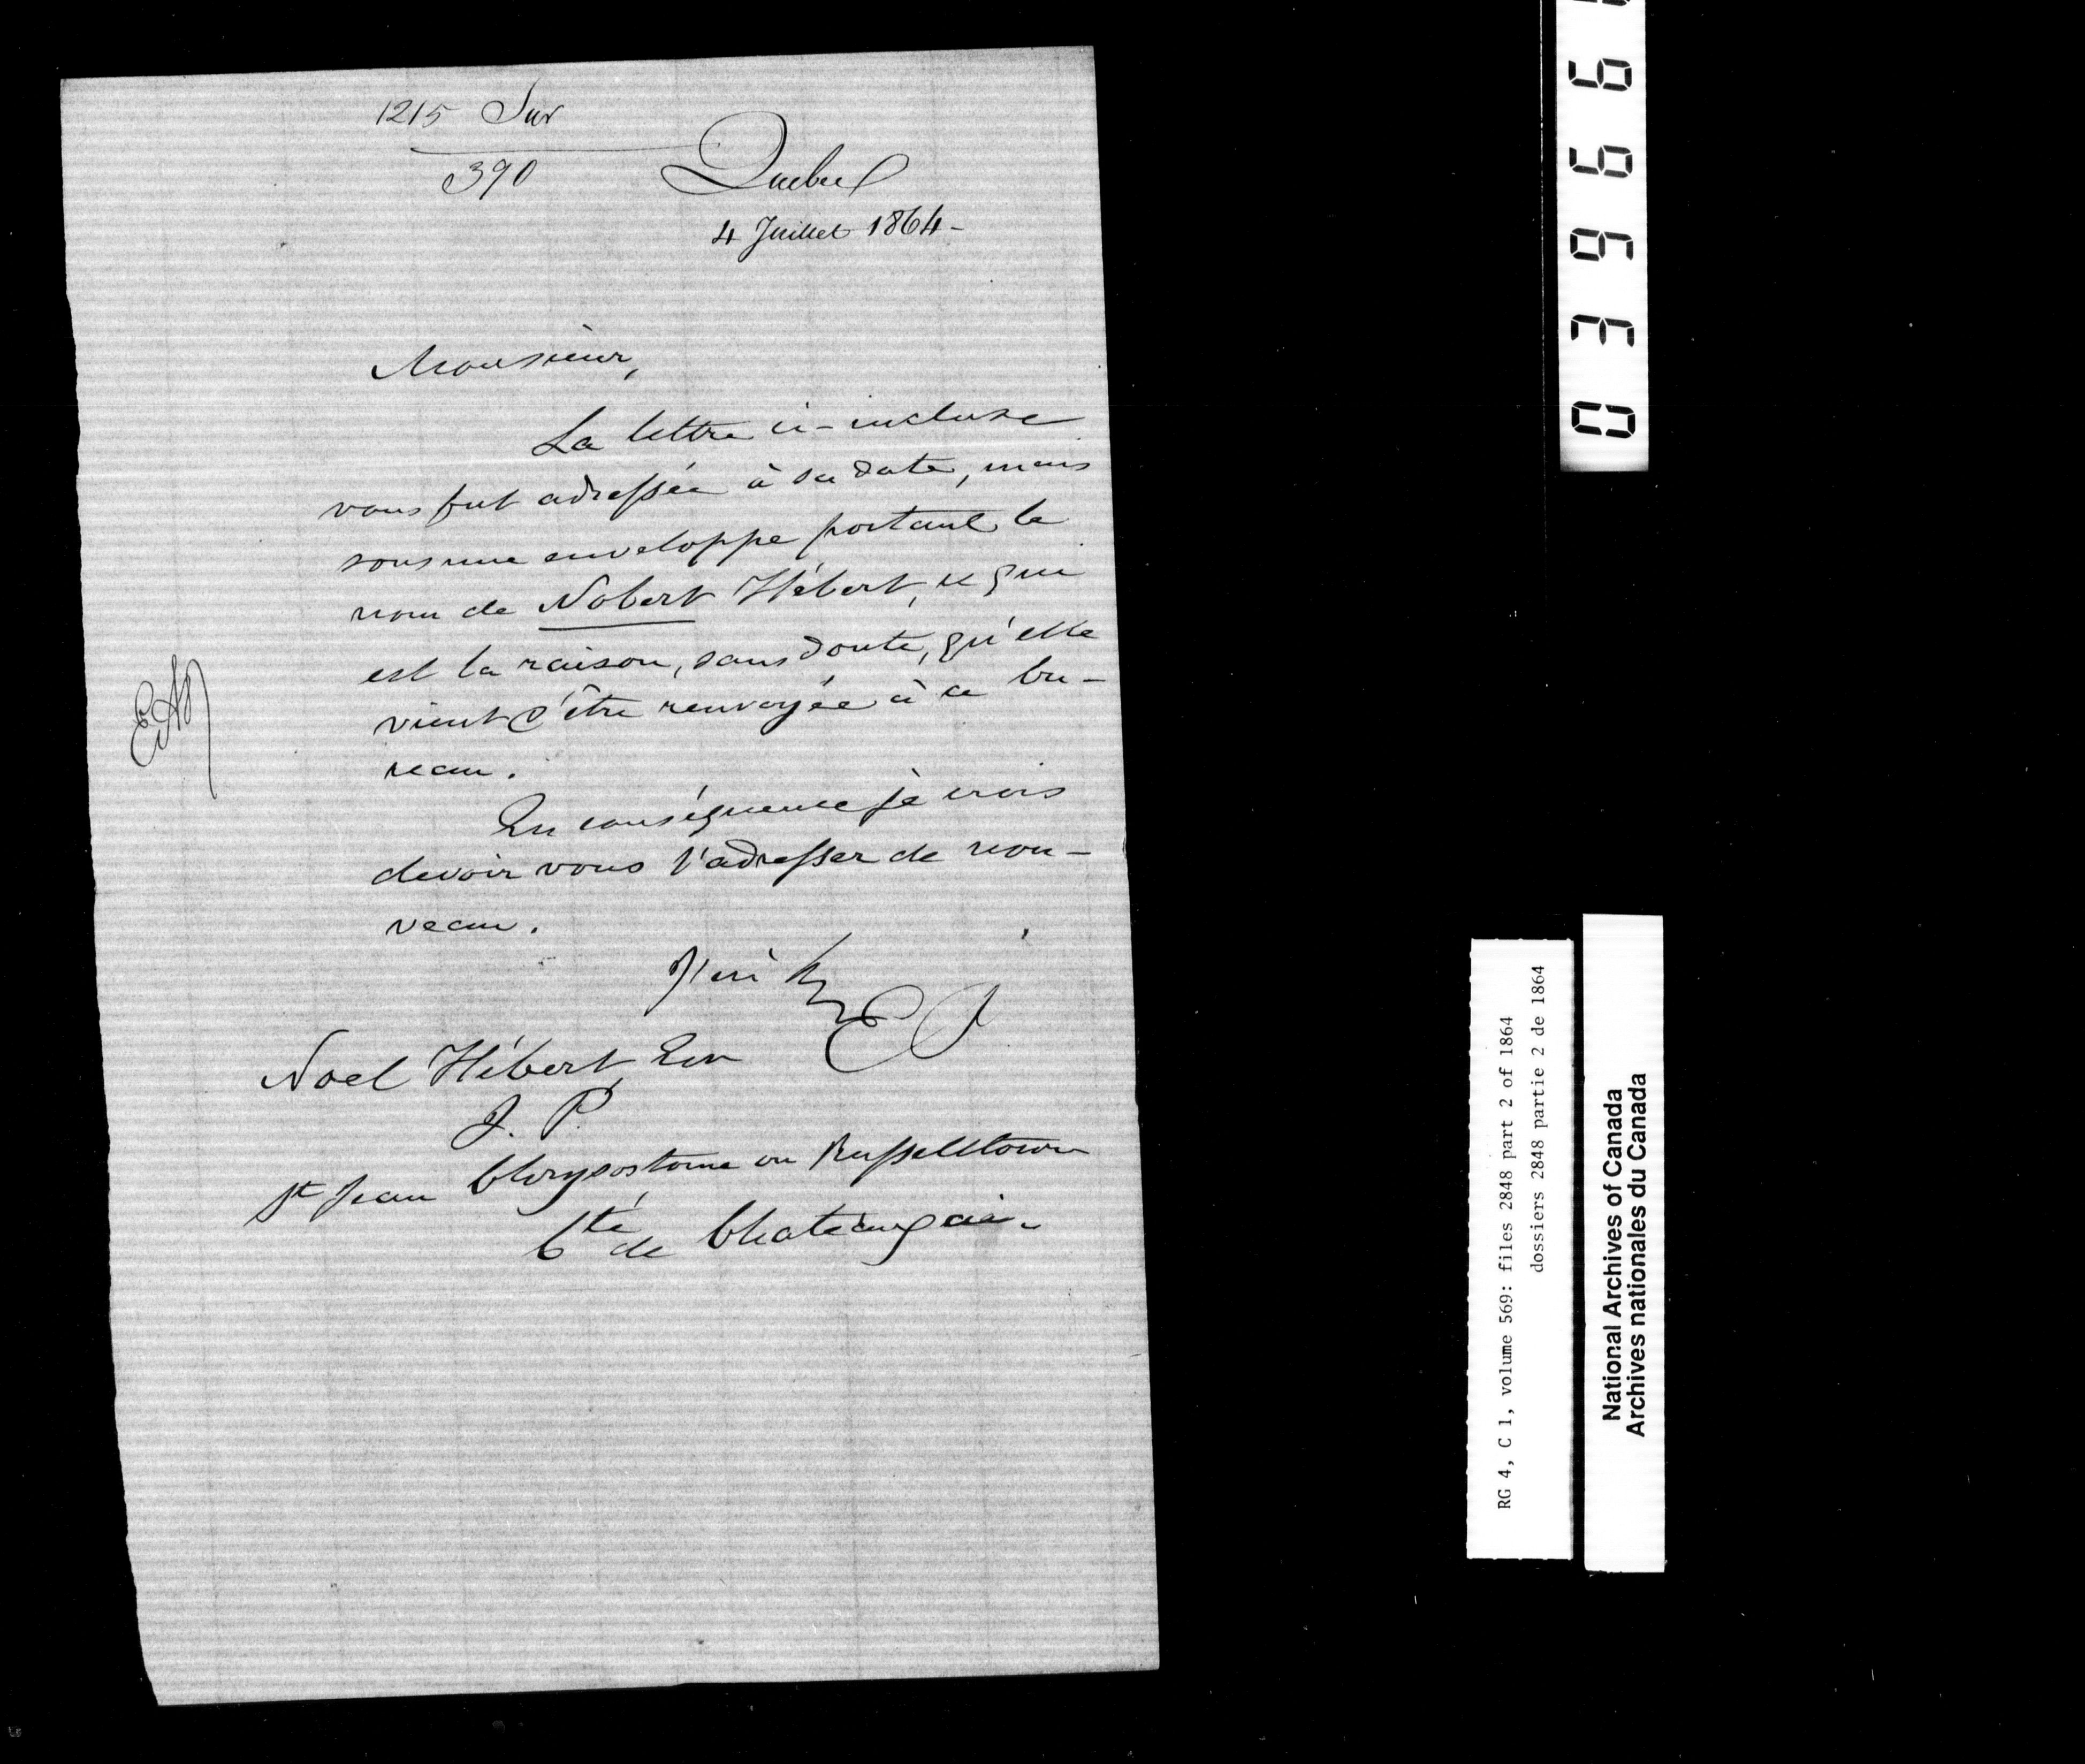 1215 Sur
390
Quebec
4 Juillet 1864-
Monsieur,
La lettre ci-incluse
vous fut adressée à sa date, mais
sous une enveloppe portant le
nom de Nobert Hébert, ce qui
est la raison, sans doute, qu'elle
vient d'être renvoyée à ce bu-
reau.
En conséquence je crois
devoir vous l'adresser de nou-
veau.
Noel Hébert, Ecr
J. P.
St Jean Chrysostome ou Russelltown
Cté de Chateauguai.
03966
RG 4, C 1, volume 569: files 2848 part 2 of 1864
dossiers 2848 partie 2 de 1864
National Archives of Canada
Archives nationales du Canada